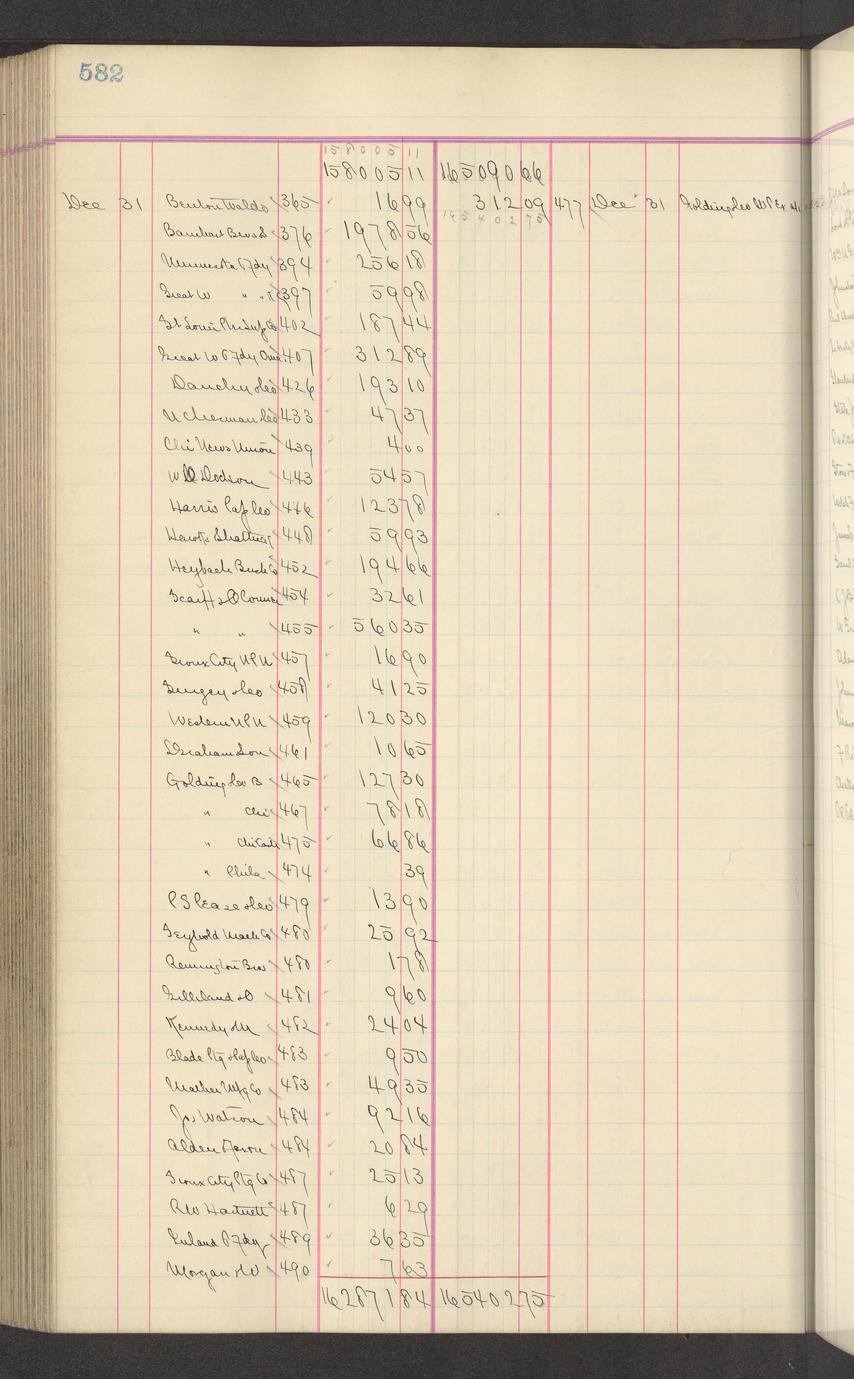 582
15800511
15800511 16509066
Dec 31 Benton Waldo 365 1699 31209 477 Dec 31 Golding &Co
Barnhart Bros & S 376 197856 16540275
Minnesota T Fdy 394 25618
Great W " " 397 5998
St Louis Ptrs Sup Co 402 18744
Great W T Fdy Oma 407 31289
426 19310
433 4737
Chi News Union 439 400
W D Dodson 443 5457
Harris Pap &Co 446 12378
448 5993
452 19466
& O'Connor 454 3261
" " 455 56035
Sioux City N P U 457 1690
&Co 458 4125
Western N P U 459 12030
Graham & Son 461 1065
Golding &Co B 465 12730
" Chi 467 7818
" 475 6686
" Phila 474 39
P S Pease &Co 479 1390
Seybold Mach Co 480 2592
Remington Bros 480 178
Gilliland & O 481 960
Kennedy & M 482 2404
Blade Ptg & Pap Co 483 950
Mather Mfg Co 483 4935
Jos Watson 484 9216
Alden 484 2084
Sioux City Ptg Co 487 2513
R W Hartnett 487 629
Inland T Fdy 489 3635
Morgan & W 490 763
16287184 16540275